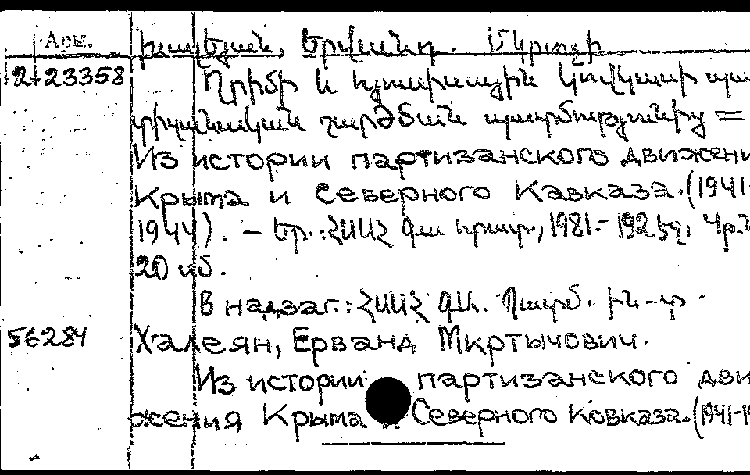 Арм.
Խալեյան, Երվանդ. Մկրտչի
2+23358 Ղրիմի և հյուսիսային Կովկասի պար
տիզանական շարժման պատմությունից =
Из истории партизанского движени
Крыма и Северного Кавказа.(1941-
1944). – Եր.: ՀՍՍՀ ԳԱ հրատ, 1981.- 192 էջ,
20 սմ.
В надзаг.: ՀՍՍՀ ԳԱ. Պատմ. ին-տ.
56284 Халеян, Ерванд Мкртычович.
Из истории партизанского дви
жения Крыма Северного Кавказа.(1941-19